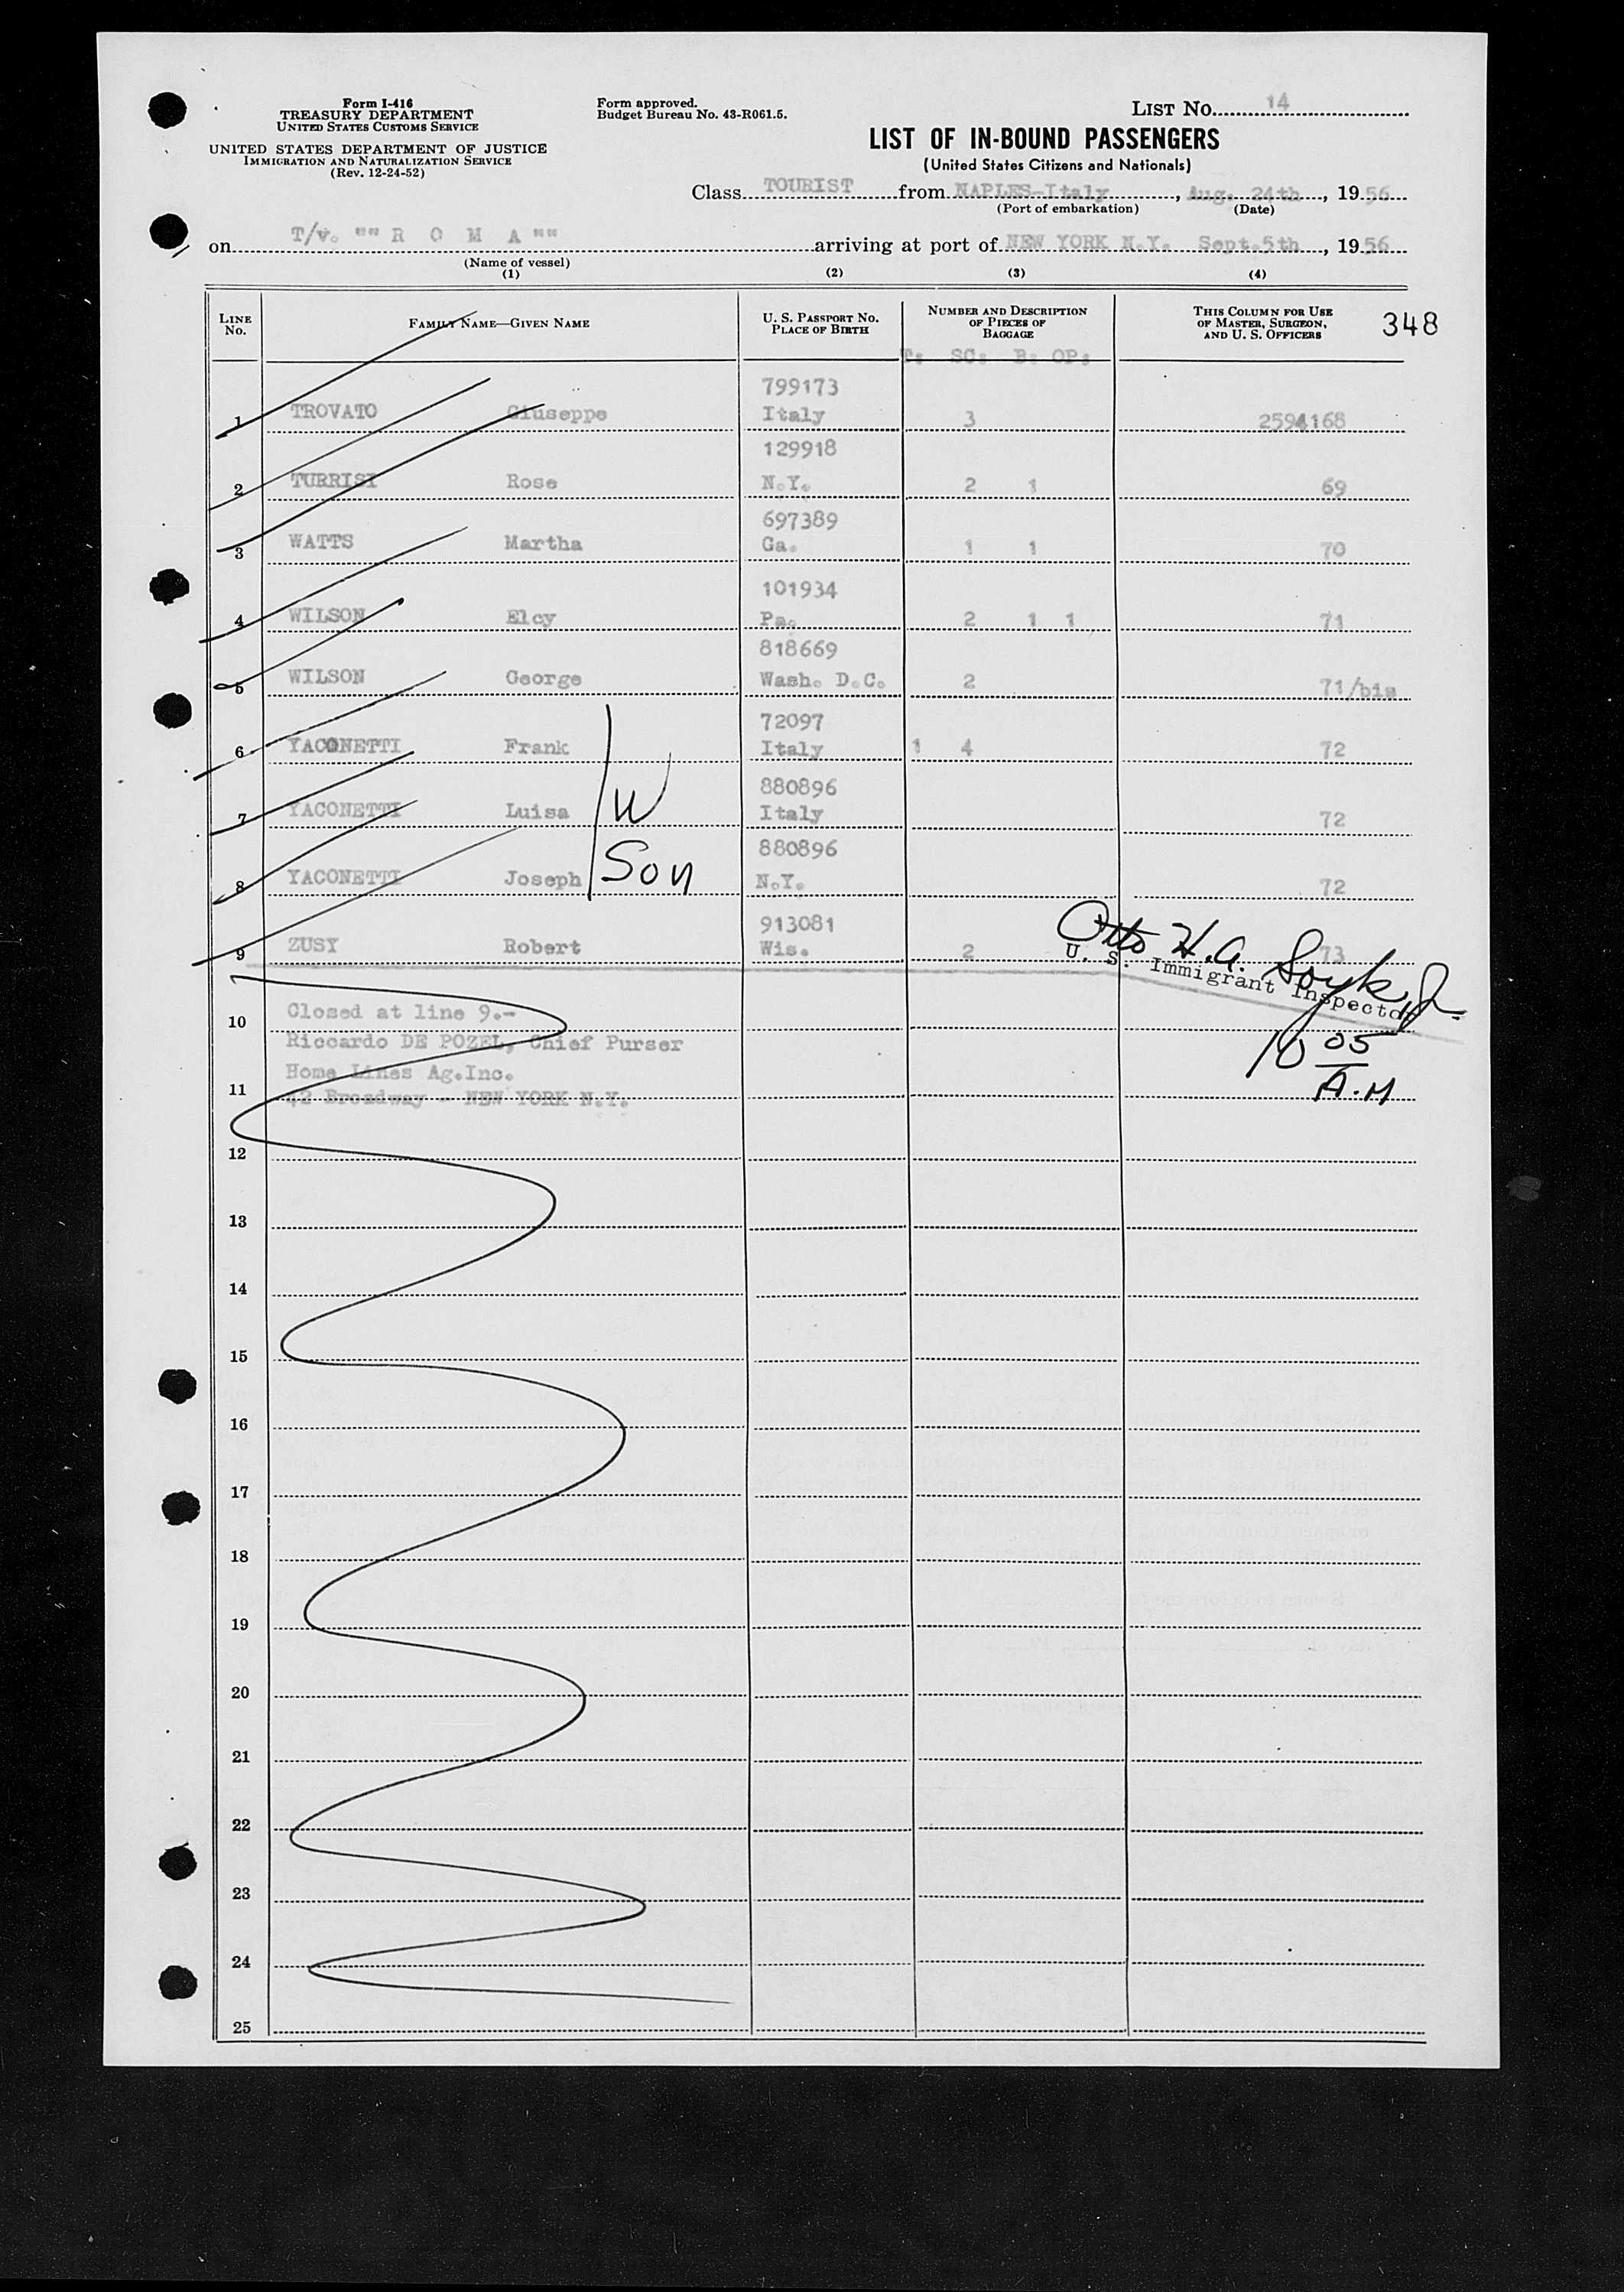 Form I-416
TREASURY DEPARTMENT
UNITED STATES CUSTOMS SERVICE
UNITED STATES DEPARTMENT OF JUSTICE
IMMIGRATION AND NATURALIZATION SERVICE
(Rev. 12-24-52)
Form approved.
Budget Bureau No. 43-R061.5.
LIST No. 14
LIST OF IN-BOUND PASSENGERS
(United States Citizens and Nationals)
Class TOURIST from NAPLES-Italy, Aug. 24th, 1956
(Port of embarkation) (Date)
on T/v. "" R O M A "" arriving at port of NEW YORK N.Y. Sept.5th, 1956
(Name of vessel)
(1) (2) (3) (4)
LINE No. FAMILY NAME—GIVEN NAME U. S. PASSPORT NO. PLACE OF BIRTH NUMBER AND DESCRIPTION OF PIECES OF BAGGAGE THIS COLUMN FOR USE OF MASTER, SURGEON, AND U. S. OFFICERS 348
T: SC: B: OP:
799173
1 TROVATO Giuseppe Italy 3 2594168
129918
2 TURRISI Rose N.Y. 2 1 69
697389
3 WATTS Martha Ga. 1 1 70
101934
4 WILSON Elcy Pa. 2 1 1 71
818669
5 WILSON George Wash. D.C. 2 71/bis
72097
6 YACONETTI Frank Italy 1 4 72
880896
7 YACONETTI Luisa W Italy 72
880896
8 YACONETTI Joseph Son N.Y. 72
913081
9 ZUSY Robert Wis. 2 73
Otto H.A. Soyk, Jr.
U. S. Immigrant Inspector
10 05
A.M
Closed at line 9.-
10
Riccardo DE POZEL, Chief Purser
Home Lines Ag.Inc.
11
42 Broadway - NEW YORK N.Y.
12
13
14
15
16
17
18
19
20
21
22
23
24
25